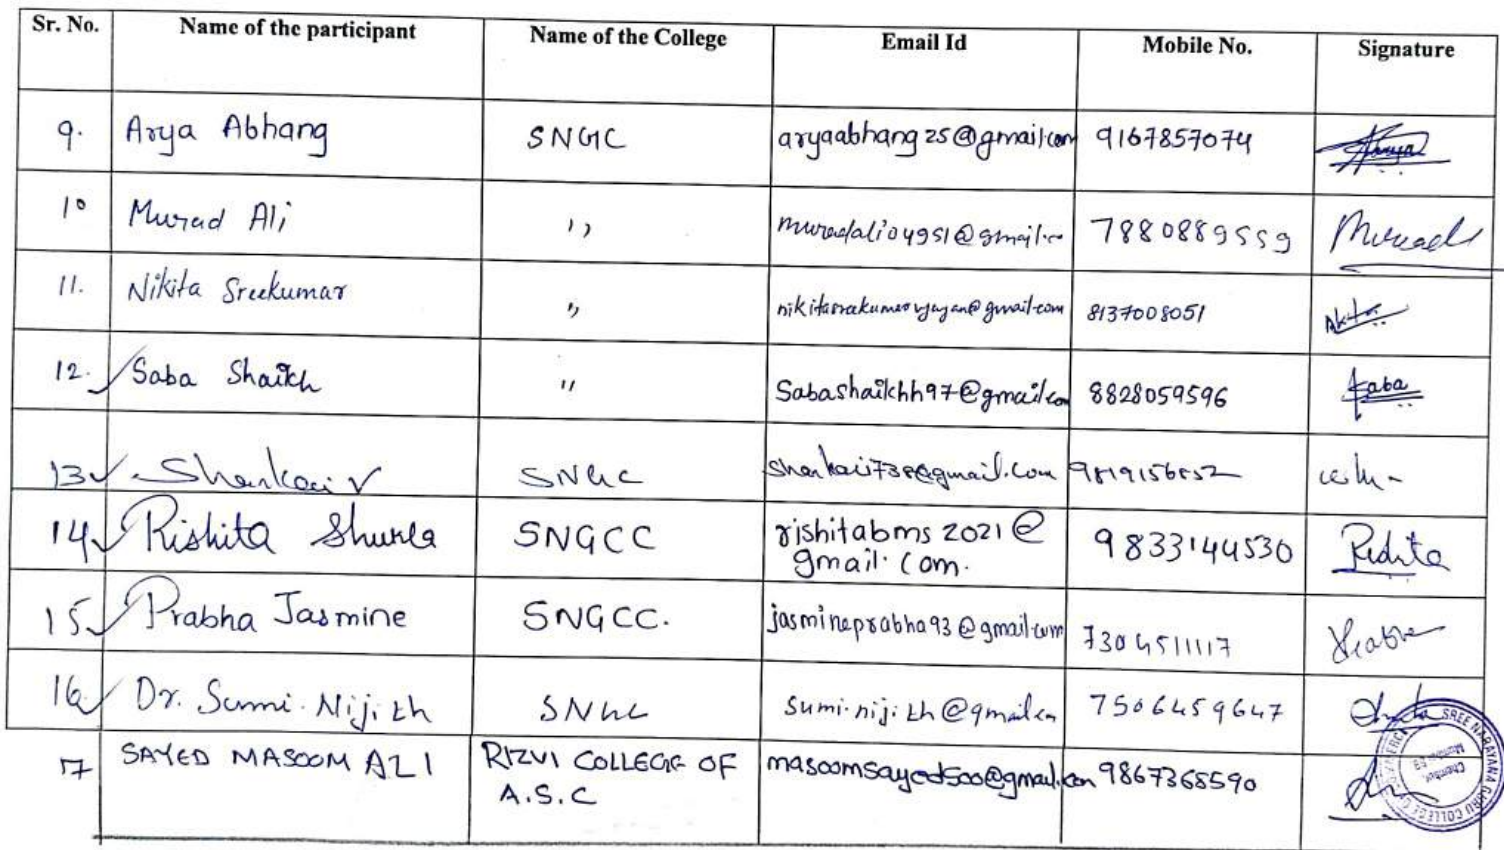 Sr. No. Name of the participant Name of the College Email Id Mobile No. Signature
9. Arya Abhang SNGC aryaabhang25@gmail.com 9167857074 Arya
10 Murad Ali ,, muradali04951@gmail.co 7880889559 Murad
11. Nikita Sreekumar ,, 8137008051
12. Saba Shaikh ,, Sabashaikhh97@gmail.com 8828059596 Saba
13 SNGC
14 Rishita Shukla SNGCC rishitabms2021@
gmail.com. 9833144530 Rishita
15 Prabha Jasmine SNGCC. jasmineprabha93@gmail.com 7304511117 Prabha
16 Dr. Sumi Nijith SNGC sumi.nijith@gmail.com 7506459647
17 SAYED MASOOM ALI RIZVI COLLEGE OF masoomsayed500@gmail.com 9867365590
A.S.C
SREE NARAYANA GURU COLLEGE OF COMMERCE
Chembur,
Mumbai